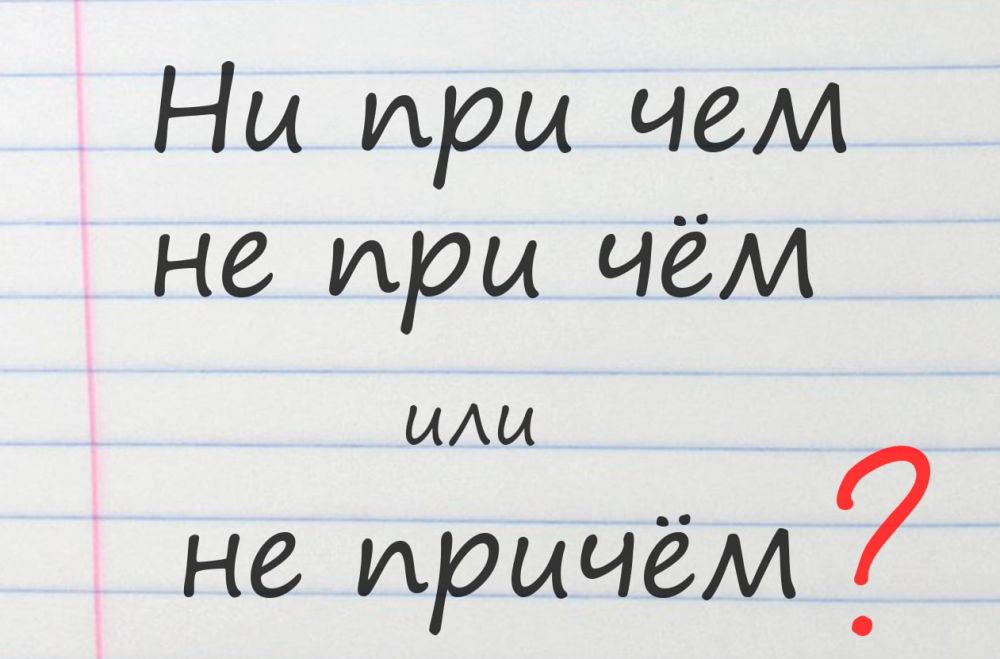 Ни при чем
не при чём
или
не причём?